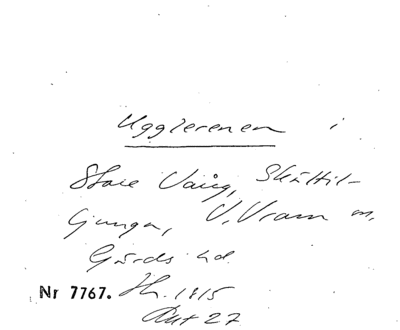 Ugglerenen i
Store Vång, Skättil-
ljunga, V. Vram m.
Gärds hd.
Nr 7767. Hr. 1915
Akt 27